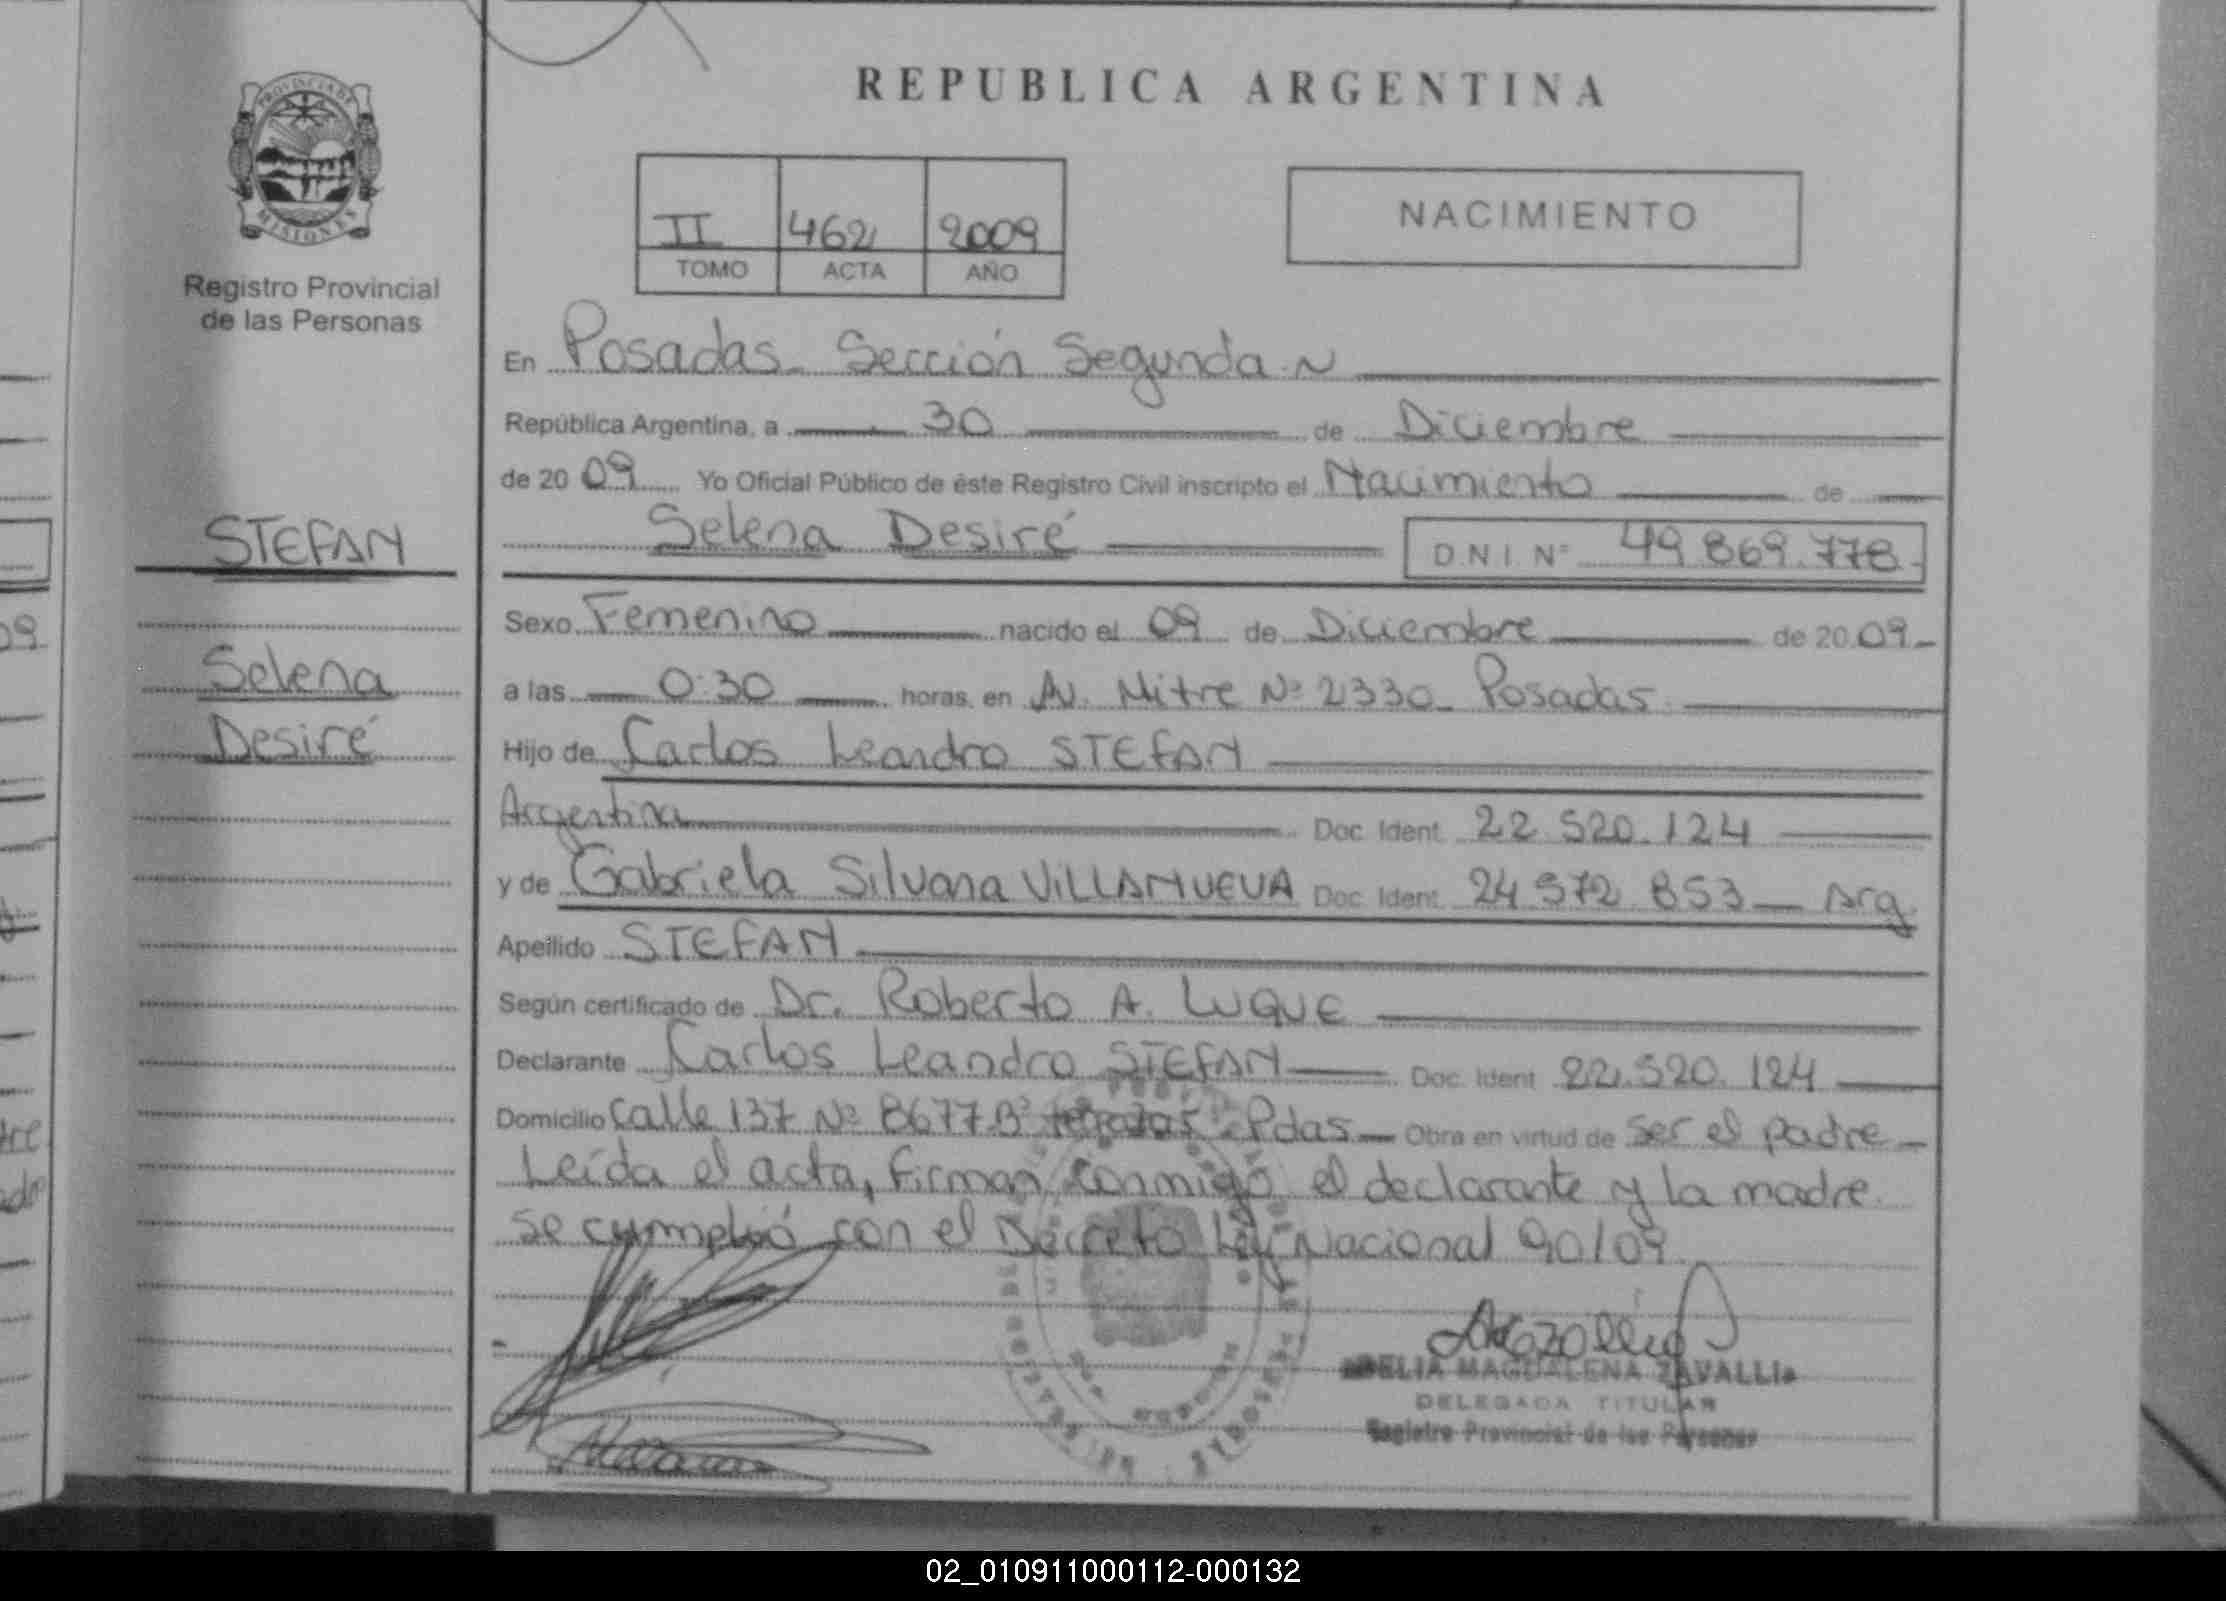 REPUBLICA ARGENTINA
PROVINCIA DE
MISIONES
Registro Provincial
de las Personas
II 462 2009
TOMO ACTA AÑO
NACIMIENTO
En Posadas Sección Segunda
República Argentina, a 30 de Diciembre
de 20 09 Yo Oficial Público de éste Registro Civil inscripto el Nacimiento de
STEFAN
Selena Desiré D.N.I. Nº 49.869.778
Sexo Femenino nacido el 09 de Diciembre de 20 09
Selena
a las 0:30 horas, en Av. Mitre Nº 2330 Posadas
Desiré
Hijo de Carlos Leandro STEFAN
Argentina Doc. Ident. 22.520.124
y de Gabriela Silvana VILLANUEVA Doc. Ident. 24.572.853 Arg
Apellido STEFAN
Según certificado de Dr. Roberto A. LUQUE
Declarante Carlos Leandro STEFAN Doc. Ident. 22.520.124
Domicilio Calle 137 Nº 8677 Bº Pdas Obra en virtud de ser el padre
Leída el acta, firman conmigo el declarante y la madre
se cumplió con el Decreto Ley Nacional 90/09
DELIA MAGDALENA ZAVALLI
DELEGADA TITULAR
Registro Provincial de las Personas
02_010911000112-000132